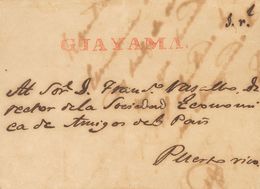 S. r.l
GUAYAMA.
Al Sor. D. Franco Vasallo, Di-
rector de la Sociedad Econom-
ica de Amigos del Pais
Puerto rico